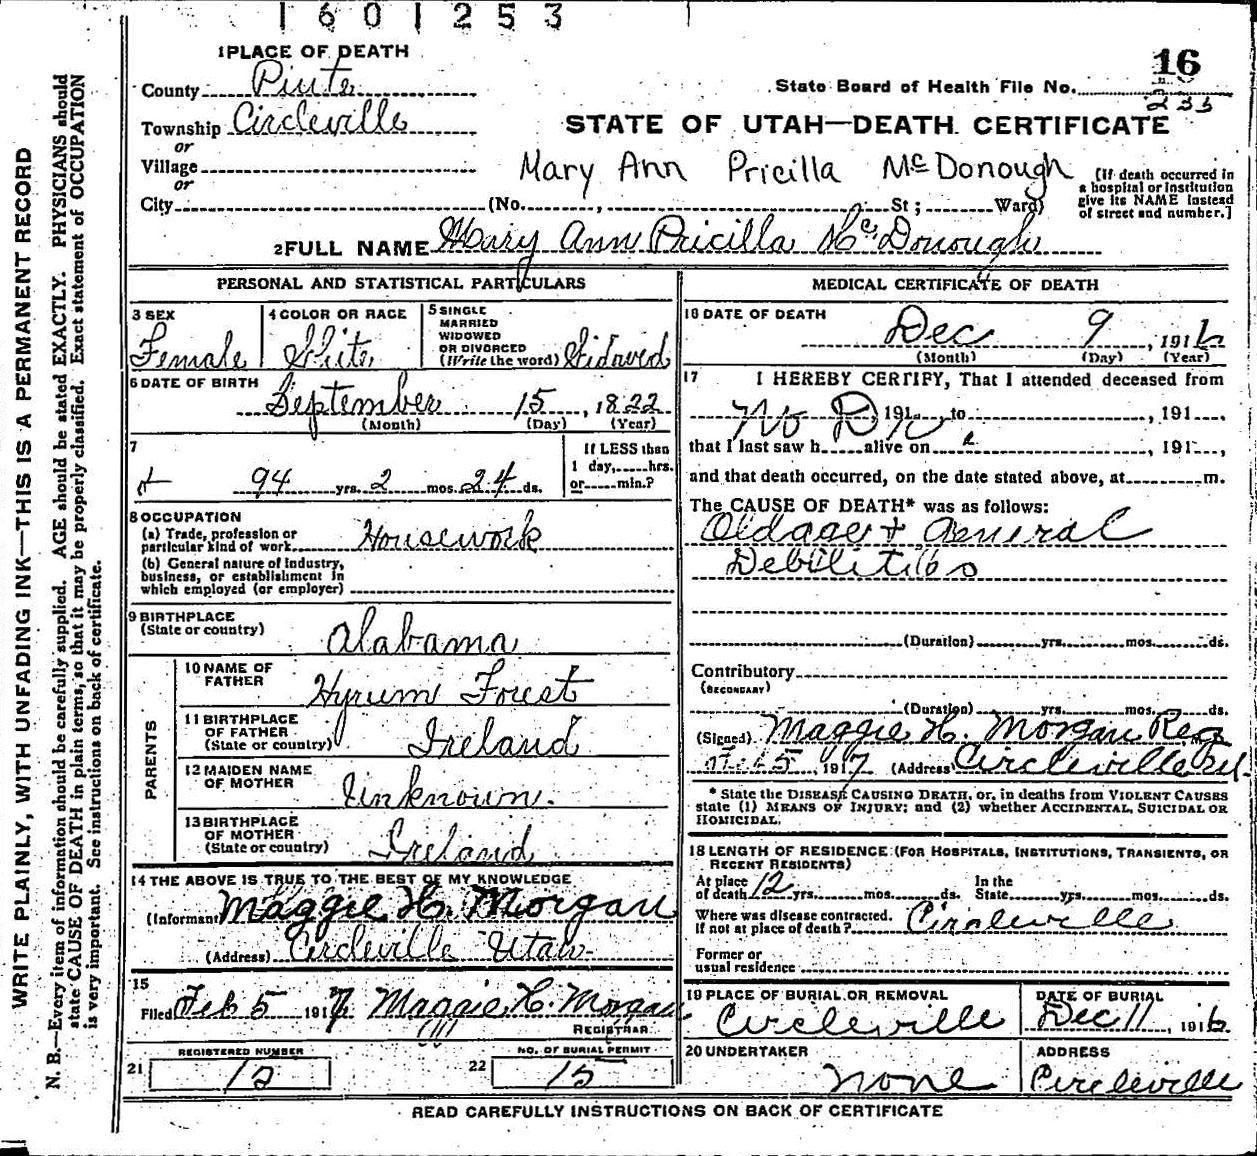 1601253
16
233
State Board of Health File No.
STATE OF UTAH—DEATH CERTIFICATE
1 PLACE OF DEATH
County Piute
Township Circleville
or
Village
or
City (No. , St; Ward)
Mary Ann Pricilla McDonough
[If death occurred in a hospital or institution give its NAME instead of street and number.]
2 FULL NAME Mary Ann Pricilla McDonough
PERSONAL AND STATISTICAL PARTICULARS
3 SEX
Female
4 COLOR OR RACE
White
5 SINGLE
MARRIED
WIDOWED
OR DIVORCED
(Write the word) Widowed
6 DATE OF BIRTH
September 15, 1822
(Month) (Day) (Year)
7
94 yrs. 2 mos. 24 ds.
If LESS than
1 day, hrs.
or min.?
8 OCCUPATION
(a) Trade, profession or
particular kind of work Housework
(b) General nature of industry,
business, or establishment in
which employed (or employer)
9 BIRTHPLACE
(State or country) Alabama
PARENTS
10 NAME OF
FATHER Hyrum Forest
11 BIRTHPLACE
OF FATHER
(State or country) Ireland
12 MAIDEN NAME
OF MOTHER Unknown.
13 BIRTHPLACE
OF MOTHER
(State or country) Ireland
14 THE ABOVE IS TRUE TO THE BEST OF MY KNOWLEDGE
(Informant Maggie H. Morgan
(Address) Circleville Utah
15
Filed Feb 5 1917 Maggie H. Morgan
REGISTRAR
21
REGISTERED NUMBER
12
22
NO. OF BURIAL PERMIT
15
MEDICAL CERTIFICATE OF DEATH
16 DATE OF DEATH
Dec 9, 1916
(Month) (Day) (Year)
17 I HEREBY CERTIFY, That I attended deceased from
No Dr 191 , to , 191 ,
that I last saw h alive on , 191 ,
and that death occurred, on the date stated above, at m.
The CAUSE OF DEATH* was as follows:
Oldage + General
Debilities
(Duration) yrs. mos. ds.
Contributory
(SECONDARY)
(Duration) yrs. mos. ds.
(Signed) Maggie H. Morgan Reg
Feb 5, 1917 (Address) Circleville Ut.
* State the DISEASE CAUSING DEATH, or, in deaths from VIOLENT CAUSES
state (1) MEANS OF INJURY; and (2) whether ACCIDENTAL, SUICIDAL OR
HOMICIDAL.
18 LENGTH OF RESIDENCE (FOR HOSPITALS, INSTITUTIONS, TRANSIENTS, OR
RECENT RESIDENTS)
At place
of death 12 yrs. mos. ds.
In the
State yrs. mos. ds.
Where was disease contracted.
If not at place of death? Circleville
Former or
usual residence
19 PLACE OF BURIAL OR REMOVAL
Circleville
DATE OF BURIAL
Dec 11, 1916
20 UNDERTAKER
none
ADDRESS
Circleville
READ CAREFULLY INSTRUCTIONS ON BACK OF CERTIFICATE
WRITE PLAINLY, WITH UNFADING INK—THIS IS A PERMANENT RECORD
N. B.—Every item of information should be carefully supplied. AGE should be stated EXACTLY. PHYSICIANS should
state CAUSE OF DEATH in plain terms, so that it may be properly classified. Exact statement of OCCUPATION
is very important. See instructions on back of certificate.